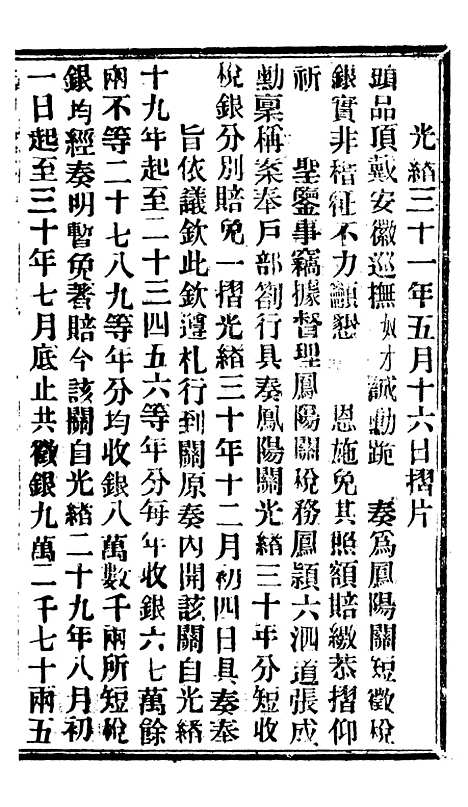 光緒三十一年五月十六日摺片
頭品頂戴安徽巡撫奴才誠勳跪　奏爲鳳陽關短徵稅
銀實非稽征不力籲懇　恩施免其照額賠繳恭摺仰
祈　聖鑒事竊據督理鳳陽關稅務鳳潁六泗道張成
勳稟稱案奉戶部劄行具奏鳳陽關光緒三十年分短收
稅銀分別賠免一摺光緒三十年十二月初四日具奏奉
旨依議欽此欽遵札行到關原奏內開該關自光緒
十九年起至二十三四五六等年分每年收銀六七萬餘
兩不等二十七八九等年分均收銀八萬數千兩所短稅
銀均經奏明暫免著賠今該關自光緒二十九年八月初
一日起至三十年七月底止共徵銀九萬二千七十兩五